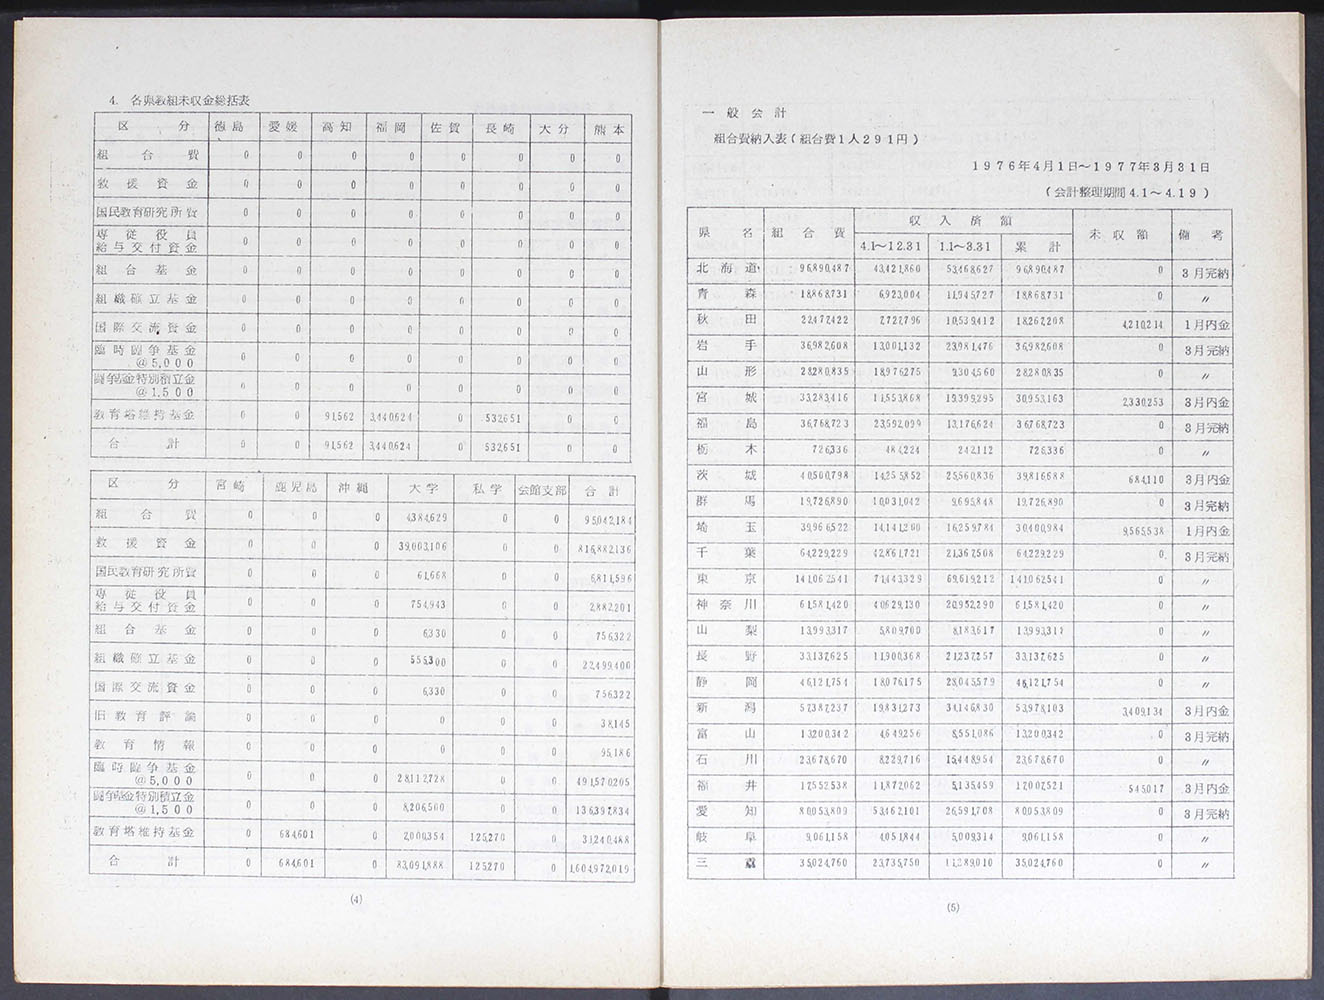 4. 各県教組未収金総括表
区 分 徳島 愛媛 高知 福岡 佐賀 長崎 大分 熊本
組合費 0 0 0 0 0 0 0 0
救援資金 0 0 0 0 0 0 0 0
国民教育研究所費 0 0 0 0 0 0 0 0
専従役員給与交付資金 0 0 0 0 0 0 0 0
組合基金 0 0 0 0 0 0 0 0
組織確立基金 0 0 0 0 0 0 0 0
国際交流資金 0 0 0 0 0 0 0 0
臨時闘争基金@5,000 0 0 0 0 0 0 0 0
闘争基金特別積立金@1,500 0 0 0 0 0 0 0 0
教育塔維持基金 0 0 91,562 3,440,624 0 532,651 0 0
合計 0 0 91,562 3,440,624 0 532,651 0 0
区 分 宮崎 鹿児島 沖縄 大学 私学 会館支部 合計
組合費 0 0 0 4,384,629 0 0 95,042,184
救援資金 0 0 0 39,003,106 0 0 816,882,136
国民教育研究所費 0 0 0 61,668 0 0 6,811,596
専従役員給与交付資金 0 0 0 754,943 0 0 2,882,201
組合基金 0 0 0 6,330 0 0 756,322
組織確立基金 0 0 0 555,300 0 0 22,499,400
国際交流資金 0 0 0 6,330 0 0 756,322
旧教育評論 0 0 0 0 0 0 38,145
教育情報 0 0 0 0 0 0 95,186
臨時闘争基金@5,000 0 0 0 28,112,728 0 0 491,570,205
闘争基金特別積立金@1,500 0 0 0 8,206,500 0 0 136,397,834
教育塔維持基金 0 684,601 0 2,000,354 125,270 0 31,240,488
合計 0 684,601 0 83,091,888 125,270 0 1,604,972,019
(4)
一般会計
組合費納入表(組合費1人291円)
1976年4月1日~1977年3月31日
(会計整理期間4.1~4.19)
県名 組合費 収入済額 未収額 備考
4.1~12.31 1.1~3.31 累計
北海道 96,890,487 43,421,860 53,468,627 96,890,487 0 3月完納
青森 18,868,731 6,923,004 11,945,727 18,868,731 0 〃
秋田 22,477,422 7,727,796 10,539,412 18,267,208 4,210,214 1月内金
岩手 36,982,608 13,001,132 23,981,476 36,982,608 0 3月完納
山形 28,280,835 18,976,275 9,304,560 28,280,835 0 〃
宮城 33,283,416 11,553,868 19,399,295 30,953,163 2,330,253 3月内金
福島 36,768,723 23,592,099 13,176,624 36,768,723 0 3月完納
栃木 726,336 484,224 242,112 726,336 0 〃
茨城 40,500,798 14,255,852 25,560,836 39,816,688 684,110 3月内金
群馬 19,726,890 10,031,042 9,695,848 19,726,890 0 3月完納
埼玉 39,966,522 14,141,200 16,259,784 30,400,984 9,565,538 1月内金
千葉 64,229,229 42,861,721 21,367,508 64,229,229 0 3月完納
東京 141,062,541 71,443,329 69,619,212 141,062,541 0 〃
神奈川 61,581,420 40,629,130 20,952,290 61,581,420 0 〃
山梨 13,993,317 5,809,700 8,183,617 13,993,317 0 〃
長野 33,137,625 11,900,368 21,237,257 33,137,625 0 〃
静岡 46,121,754 18,076,175 28,045,579 46,121,754 0 〃
新潟 57,387,237 19,831,273 34,146,830 53,978,103 3,409,134 3月内金
富山 13,200,342 4,649,256 8,551,086 13,200,342 0 3月完納
石川 23,678,670 8,229,716 15,448,954 23,678,670 0 〃
福井 17,552,538 11,872,062 5,135,459 17,007,521 545,017 3月内金
愛知 80,053,809 53,462,101 26,591,708 80,053,809 0 3月完納
岐阜 9,061,158 4,051,844 5,009,314 9,061,158 0 〃
三重 35,024,760 23,735,750 11,289,010 35,024,760 0 〃
(5)